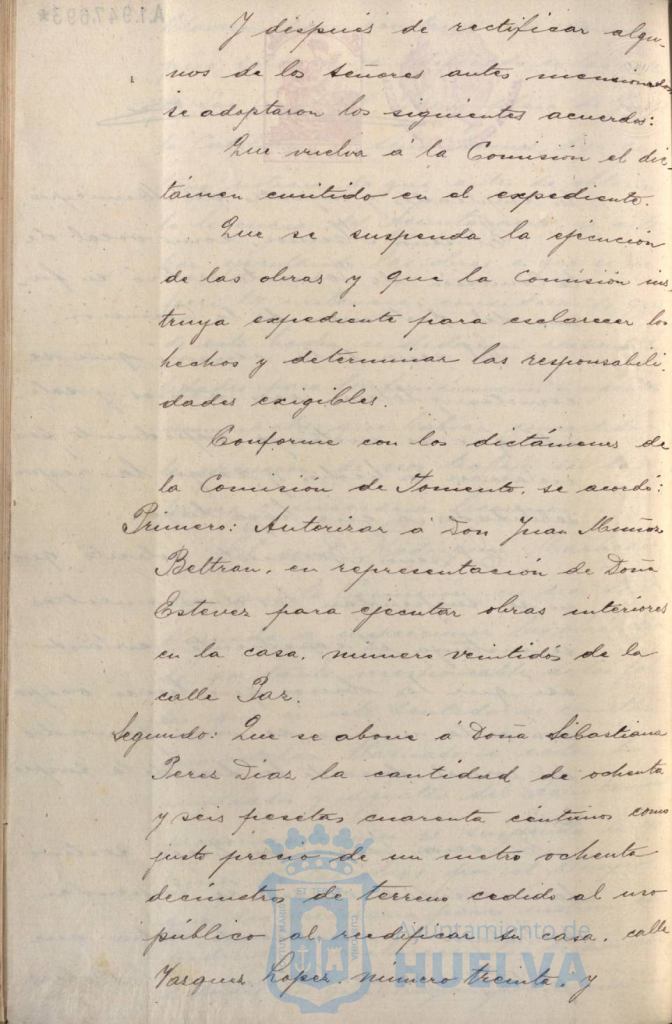 A1.947.693*
Y después de rectificar algu-
nos de los señores antes mencionados
se adoptaron los siguientes acuerdos:
Que vuelva á la Comisión el dic-
támen emitido en el expediente.
Que se suspenda la ejecución
de las obras y que la Comisión ins-
truya expediente para esclarecer los
hechos y determinar las responsabili-
dades exigibles.
Conforme con los dictámenes de
la Comisión de Fomento, se acordó:
Primero: Autorizar á Don Juan Muñoz
Beltran, en representación de Doña
Estevez para ejecutar obras interiores
en la casa, número veintidós de la
calle Paz.
Segundo: Que se abone á Doña Sebastiana
Perez Diaz la cantidad de ochenta
y seis pesetas cuarenta céntimos como
justo precio de un metro ochenta
decímetros de terreno cedido al uso
público al reedificar su casa, calle
Vazquez Lopez, número treinta, y
Ayuntamiento de
HUELVA